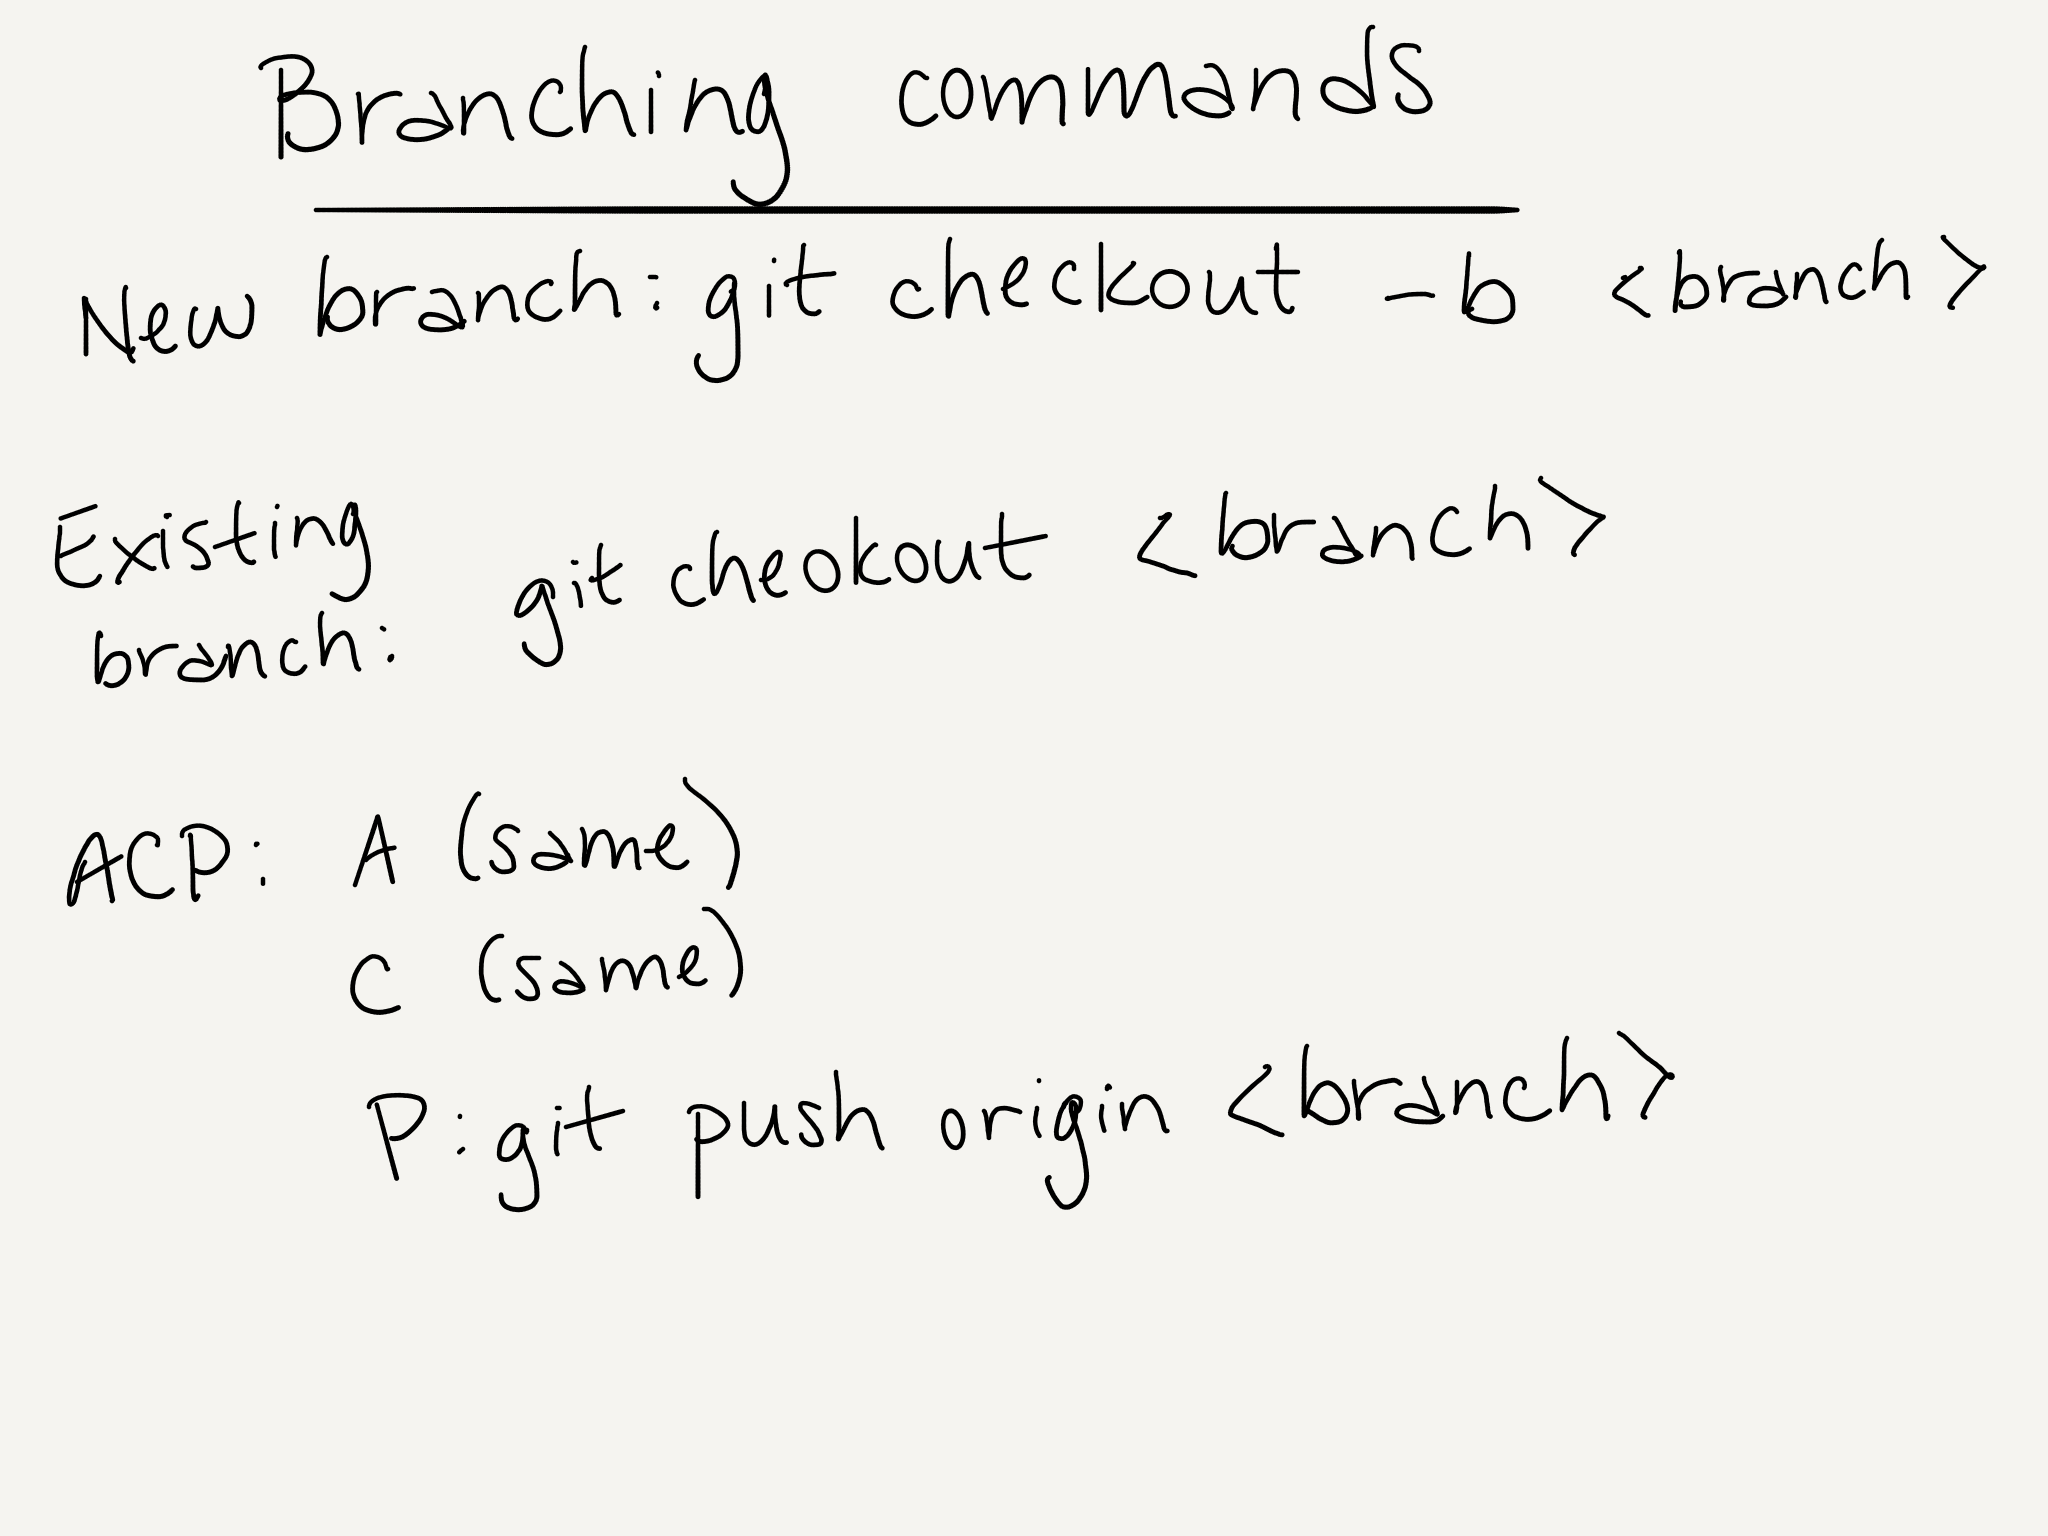 Branching commands
New branch: git checkout -b <branch>
Existing
branch: git cheokout <branch>
ACP: A (same)
C (same)
P: git push origin <branch>